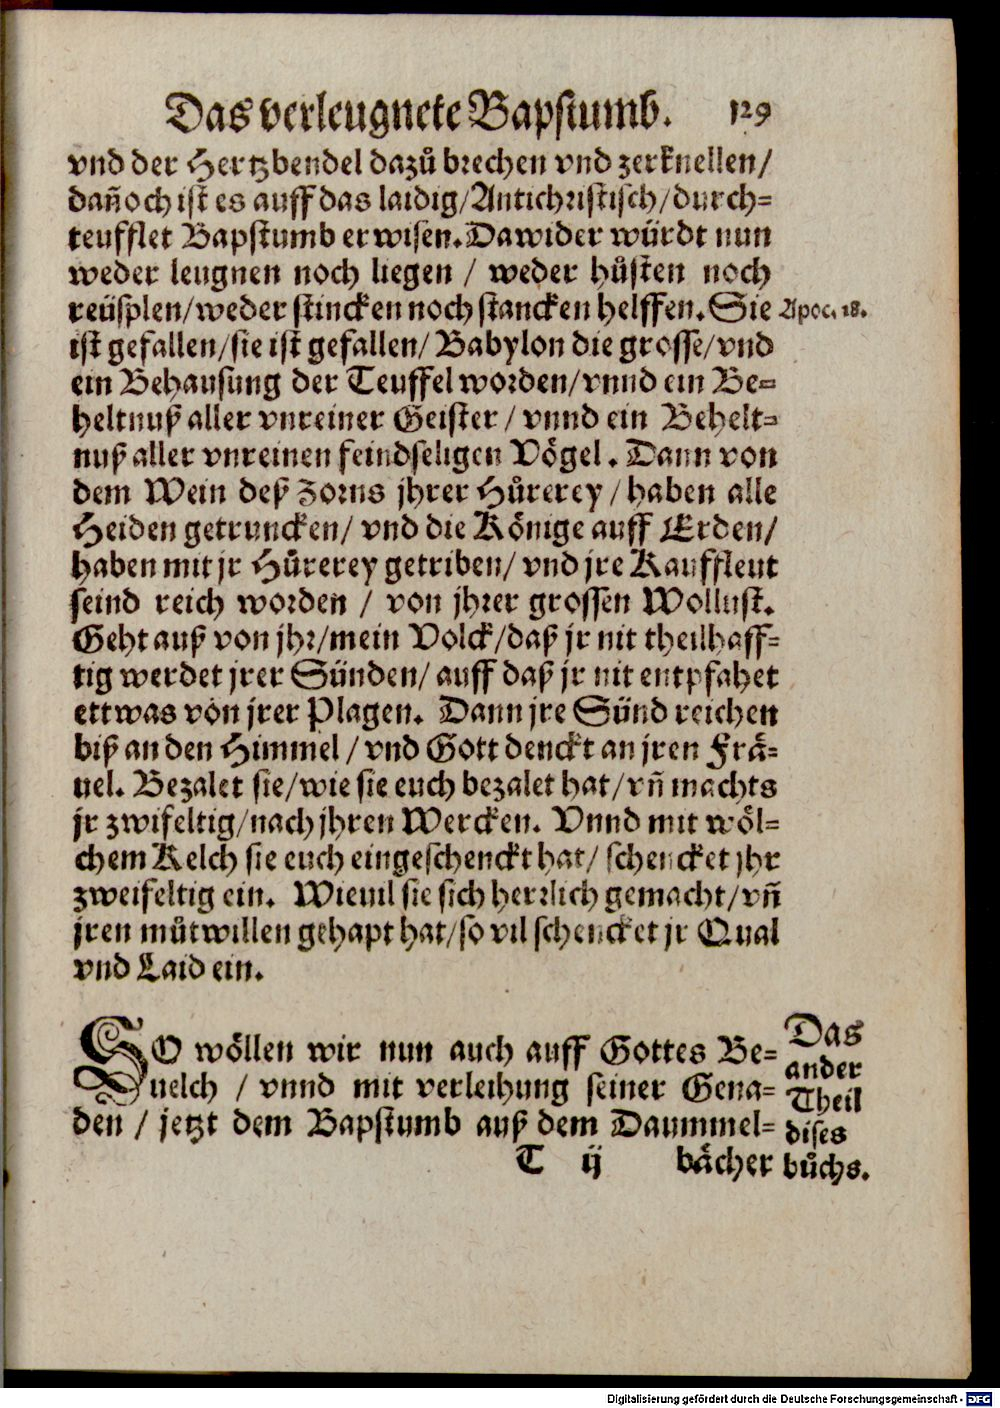 Das verleugnete Bapstumb. 129
vnd der Hertzbendel dazů brechen vnd zerknellen/
dañoch ist es auff das laidig/Antichristisch/durch=
teufflet Bapstumb erwisen. Dawider würdt nun
weder leugnen noch liegen / weder hůsten noch
reüsplen/weder stincken noch stancken helffen. Sie
Apoc. 18.
ist gefallen/sie ist gefallen/ Babylon die grosse/vnd
ein Behausung der Teuffel worden/vnnd ein Be=
heltnuß aller vnreiner Geister / vnnd ein Behelt=
nuß aller vnreinen feindseligen Vögel. Dann von
dem Wein deß Zorns jhrer Hůrerey / haben alle
Heiden getruncken/ vnd die Könige auff Erden/
haben mit jr Hůrerey getriben/ vnd jre Kauffleut
seind reich worden / von jhrer grossen Wollust.
Geht auß von jhr/mein Volck/daß jr nit theilhaff=
tig werdet jrer Sünden/ auff daß jr nit entpfahet
ettwas von jrer Plagen. Dann jre Sünd reichen
biß an den Himmel / vnd Gott denckt an jren Frä=
uel. Bezalet sie/wie sie euch bezalet hat/vñ machts
jr zwifeltig/nach jhren Wercken. Vnnd mit wöl=
chem Kelch sie euch eingeschenckt hat/ schencket jhr
zweifeltig ein. Wieuil sie sich herrlich gemacht/vñ
jren můtwillen gehapt hat/so vil schencket jr Qual
vnd Laid ein.
SO wöllen wir nun auch auff Gottes Be=
uelch / vnnd mit verleihung seiner Gena=
den / jetzt dem Bapstumb auß dem Daummel=
Das
ander
Theil
dises
bůchs.
T ij bächer
Digitalisierung gefördert durch die Deutsche Forschungsgemeinschaft - DFG